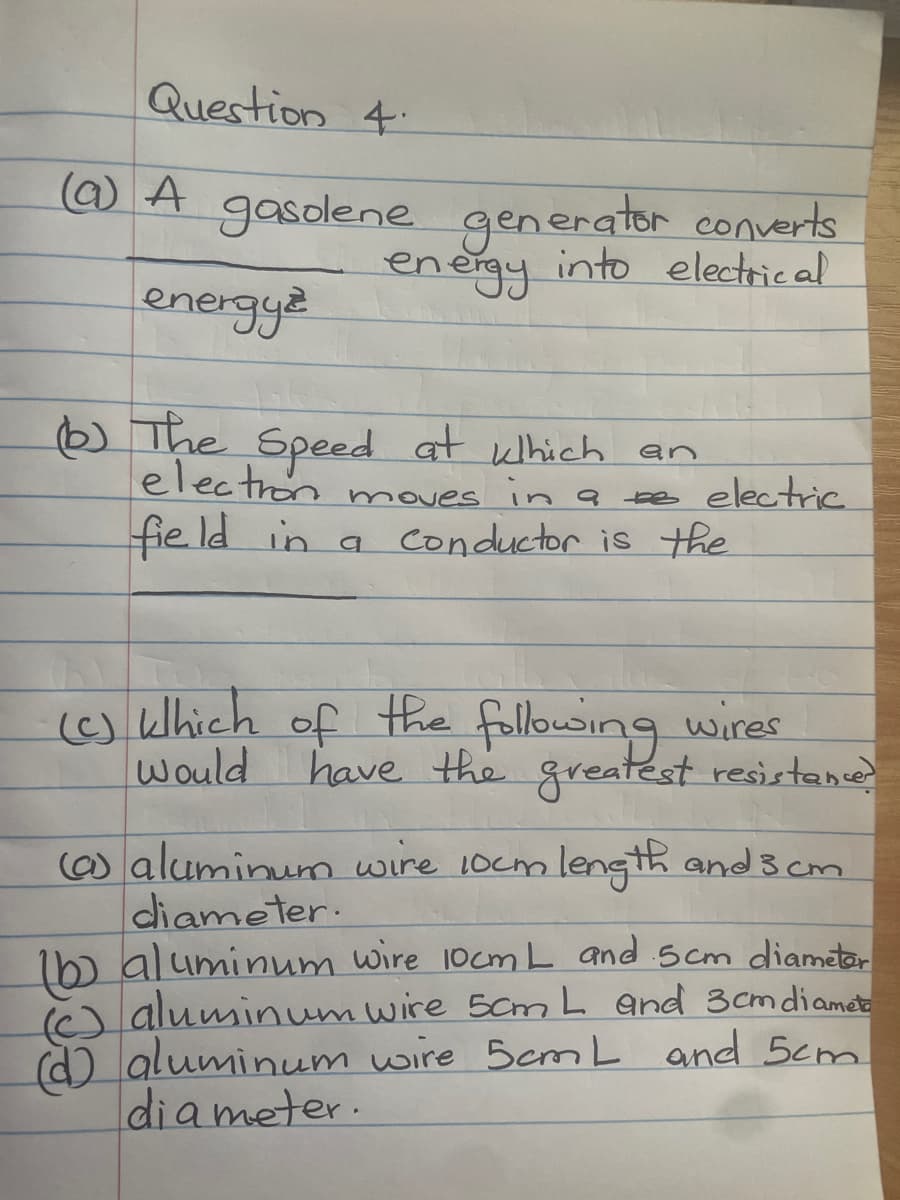 Question 4.
(a) A gasolene generator converts
________ energy into electrical
energy?
(b) The Speed at which an
electron moves in a electric
field in a conductor is the
________
(c) Which of the following wires
would have the greatest resistance?
(a) aluminum wire 10cm length and 3 cm
diameter.
(b) aluminum wire 10cm L and 5cm diameter
(c) aluminum wire 5cm L and 3cm diamete
(d) aluminum wire 5cm L and 5cm
diameter.